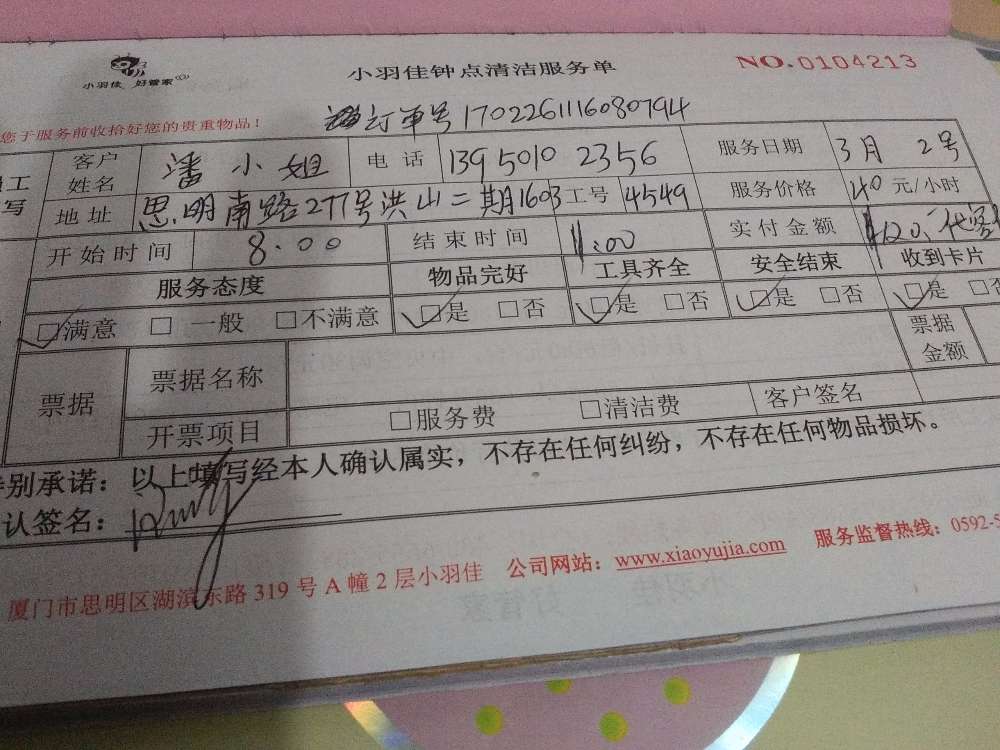 小羽佳 好管家
小羽佳钟点清洁服务单
NO.0104213
您于服务前收拾好您的贵重物品！
订单号1702261116080794
员工
写
客户姓名 潘小姐 电话 139 5010 2356 服务日期 3月 2号
地址 思明南路277号洪山二期1603 工号 4549 服务价格 40 元/小时
开始时间 8:00 结束时间 11:00 实付金额 120
服务态度 物品完好 工具齐全 安全结束 收到卡片
☑满意 □一般 □不满意 ☑是 □否 ☑是 □否 ☑是 □否 ☑是 □否
票据 票据名称 票据金额
开票项目 □服务费 □清洁费 客户签名
特别承诺：以上填写经本人确认属实，不存在任何纠纷，不存在任何物品损坏。
认签名：
厦门市思明区湖滨东路 319 号 A 幢 2 层小羽佳 公司网站：www.xiaoyujia.com 服务监督热线：0592-5